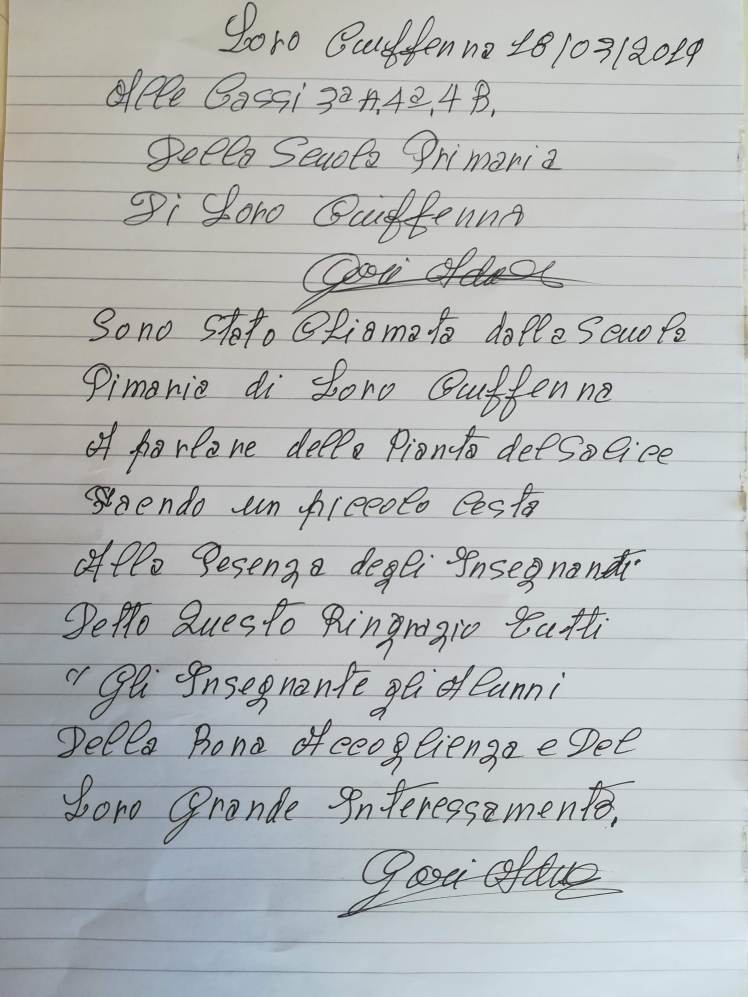 Loro Ciuffenna 18/03/2019
Alle Cassi 3ª A, 4ª, 4 B,
Della Scuola Primaria
Di Loro Ciuffenna
Gori
Sono Stato Chiamata dalla Scuola
Pimaria di Loro Ciuffenna
A parlare della Pianta del Salice
Facendo un piccolo Cesta
Alla Pesenza degli Insegnanti
Detto Questo Ringrazio Tutti
Gli Insegnante gli Alunni
Della Bona Accoglienza e Del
Loro Grande Interessamento,
Gori